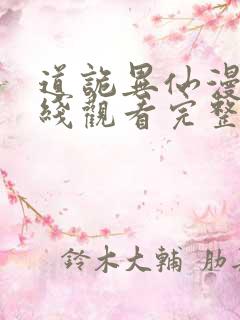 道詭異仙漫
綫觀看完整
鈴木大輔 肋